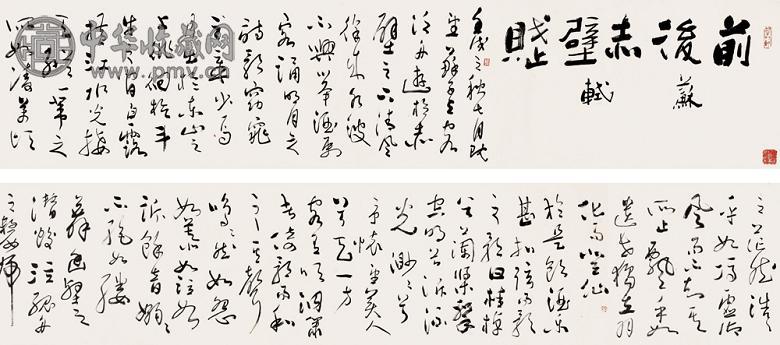 前後赤壁賦
蘇軾
壬戌之秋七月既
望蘇子與客
泛舟遊於赤
壁之下清風
徐來水波
不興舉酒屬
客誦明月之
詩歌窈窕
之章少焉
月出於東山之
上徘徊於斗
牛之間白露
橫江水光接
天縱一葦之
所如凌萬頃
之茫然浩浩
乎如馮虛御
風而不知其
所止飄飄乎如
遺世獨立羽
化而登仙
於是飲酒樂
甚扣舷而歌
之歌曰桂棹
兮蘭槳擊
空明兮泝流
光渺渺兮
予懷望美人
兮天一方
客有吹洞簫
者倚歌而和
之其聲
嗚嗚然如怨
如慕如泣如
訴餘音嫋嫋
不絕如縷
舞幽壑之
潛蛟泣孤舟
之嫠婦
中华收藏网
www.pmv.cn